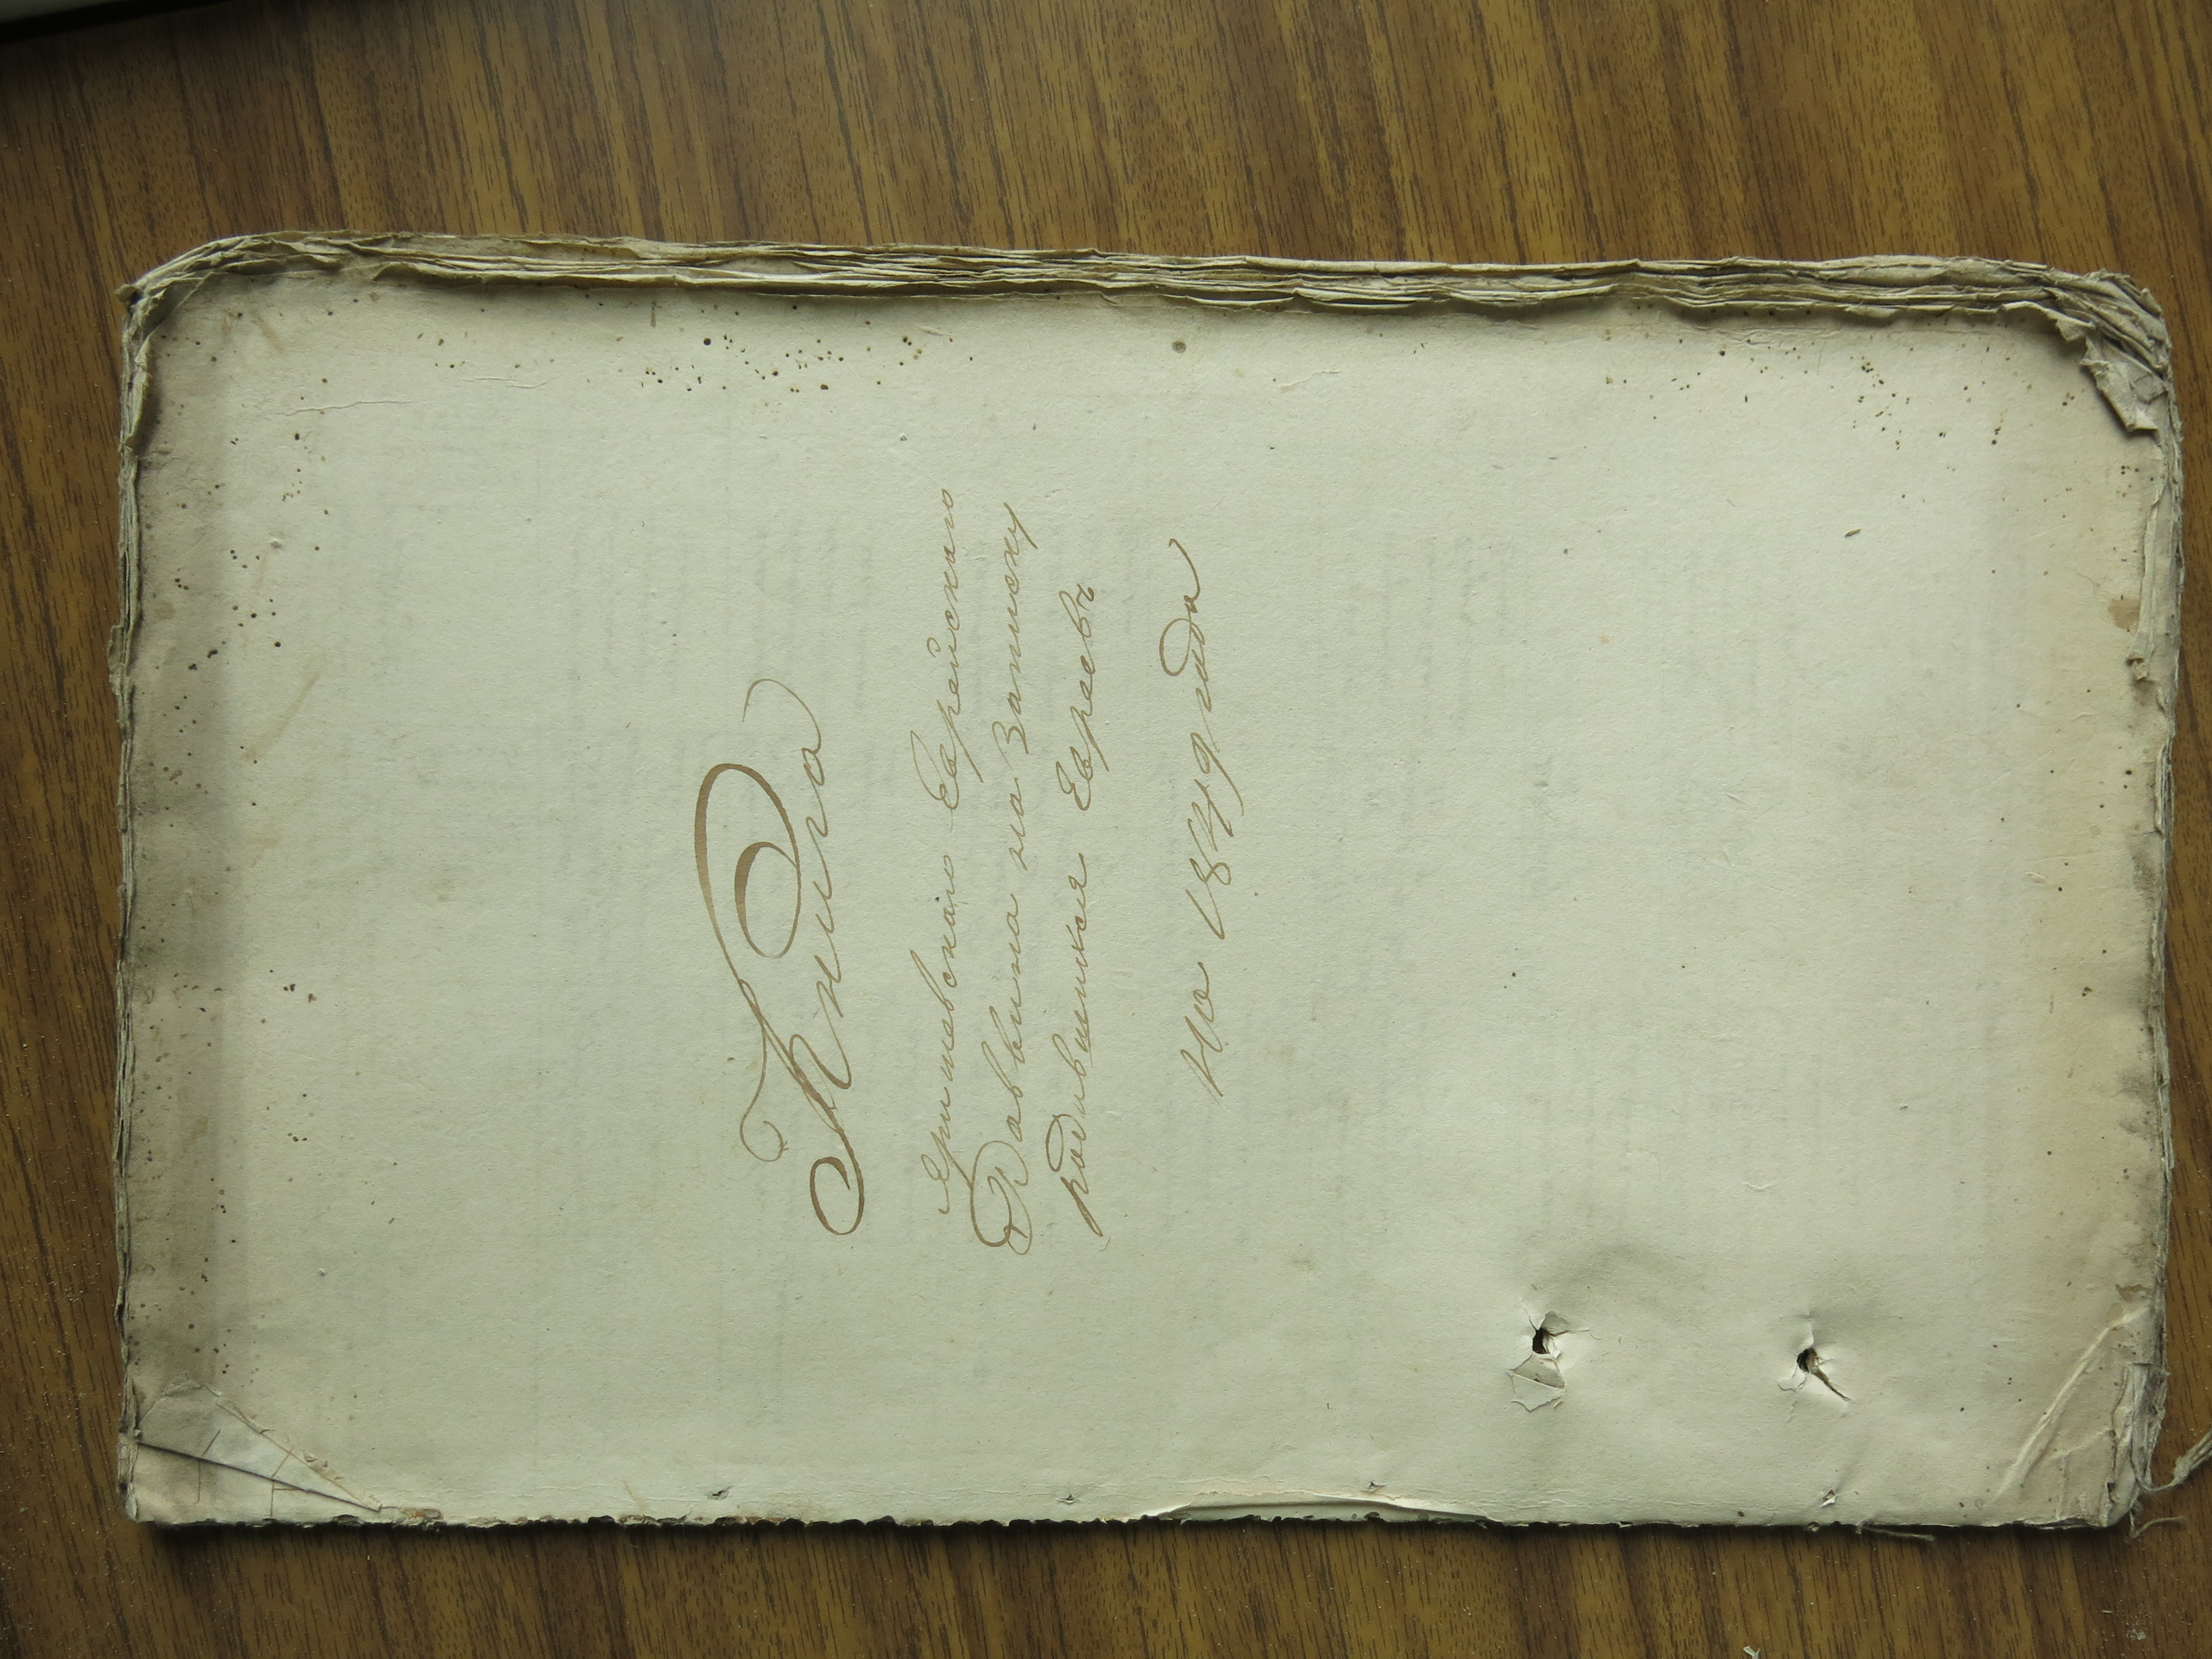 Книга
Еришевскаго Еврейскаго
Раввина на Записку
родившихся Евреевъ
на 1849 года